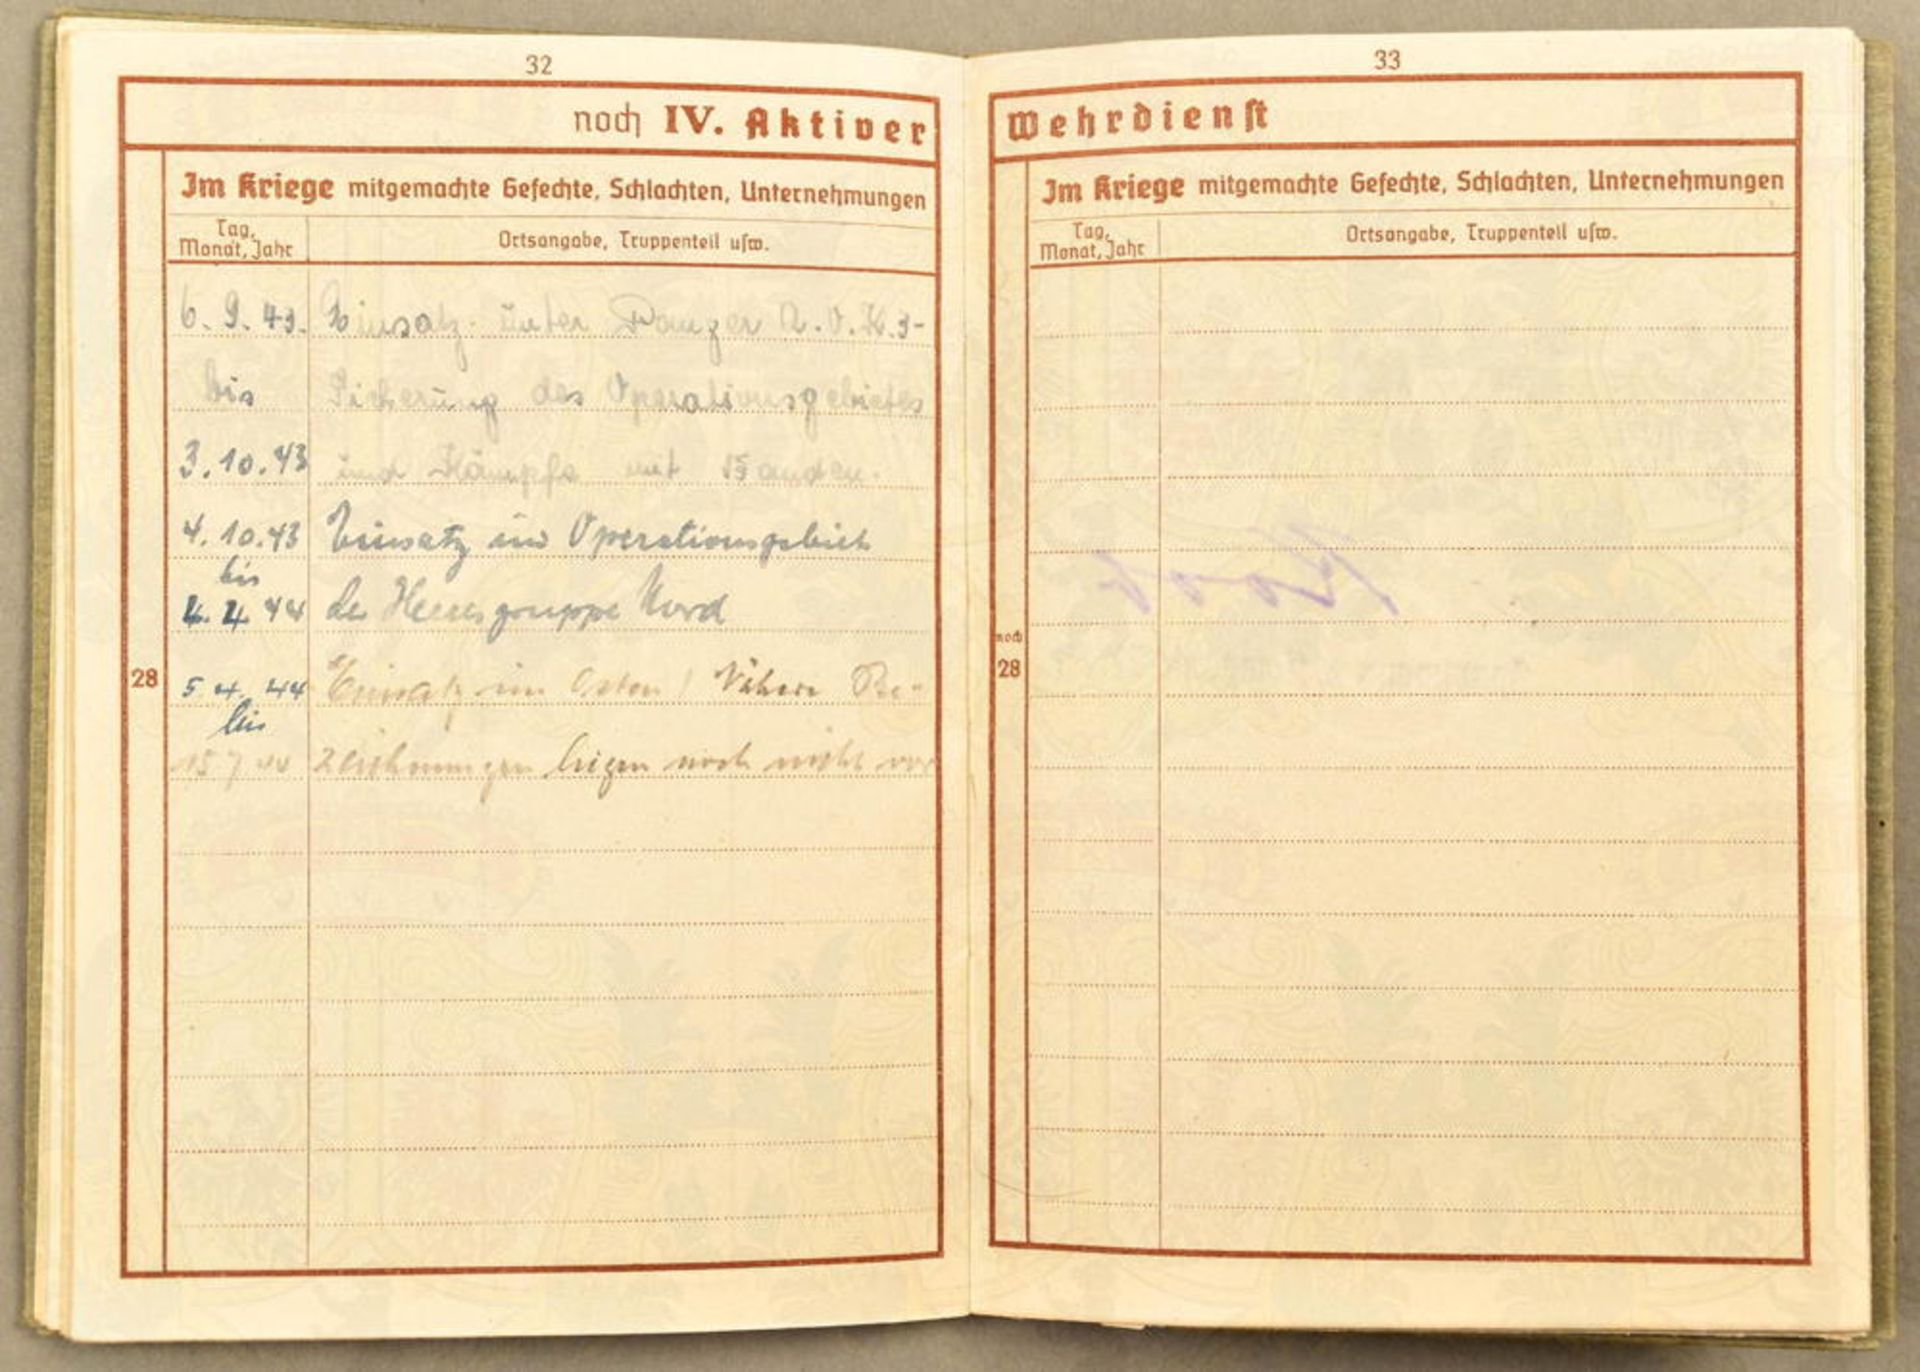 32
noch IV. Aktiver
Im Kriege mitgemachte Gefechte, Schlachten, Unternehmungen
Tag, Monat, Jahr
Ortsangabe, Truppenteil usw.
6. 9. 43. Einsatz unter Panzer A.O.K. 3-
bis Sicherung des Operationsgebietes
3. 10. 43 und Kämpfe mit Banden.
4. 10. 43 Einsatz im Operationsgebiet
bis
4. 4. 44 der Heeresgruppe Nord
28
5. 4. 44 Einsatz im Osten! Nähere Be-
bis
15 7 44 zeichnungen liegen noch nicht vor
33
Wehrdienst
Im Kriege mitgemachte Gefechte, Schlachten, Unternehmungen
Tag, Monat, Jahr
Ortsangabe, Truppenteil usw.
noch
28